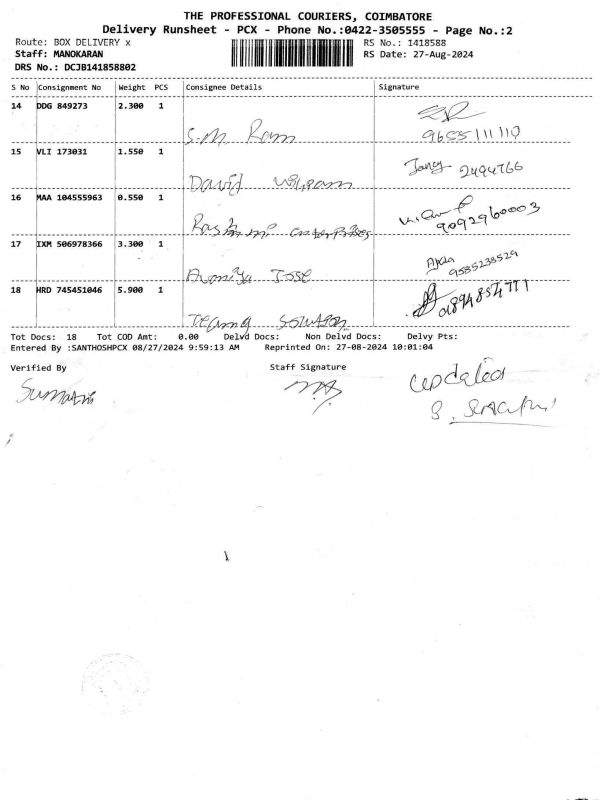 THE PROFESSIONAL COURIERS, COIMBATORE
Delivery Runsheet - PCX - Phone No.:0422-3505555 - Page No.:2
Route: BOX DELIVERY x RS No.: 1418588
Staff: MANOKARAN RS Date: 27-Aug-2024
DRS No.: DCJB141858802
S No Consignment No Weight PCS Consignee Details Signature
14 DDG 849273 2.300 1
S.M. Ram
15 VLI 173031 1.550 1
David 2494766
16 MAA 104555963 0.550 1
9092960003
17 IXM 506978366 3.300 1
Jose 9585238529
18 HRD 745451046 5.900 1
Teamg Solution
Tot Docs: 18 Tot COD Amt: 0.00 Delvd Docs: Non Delvd Docs: Delvy Pts:
Entered By :SANTHOSHPCX 08/27/2024 9:59:13 AM Reprinted On: 27-08-2024 10:01:04
Verified By Staff Signature updated